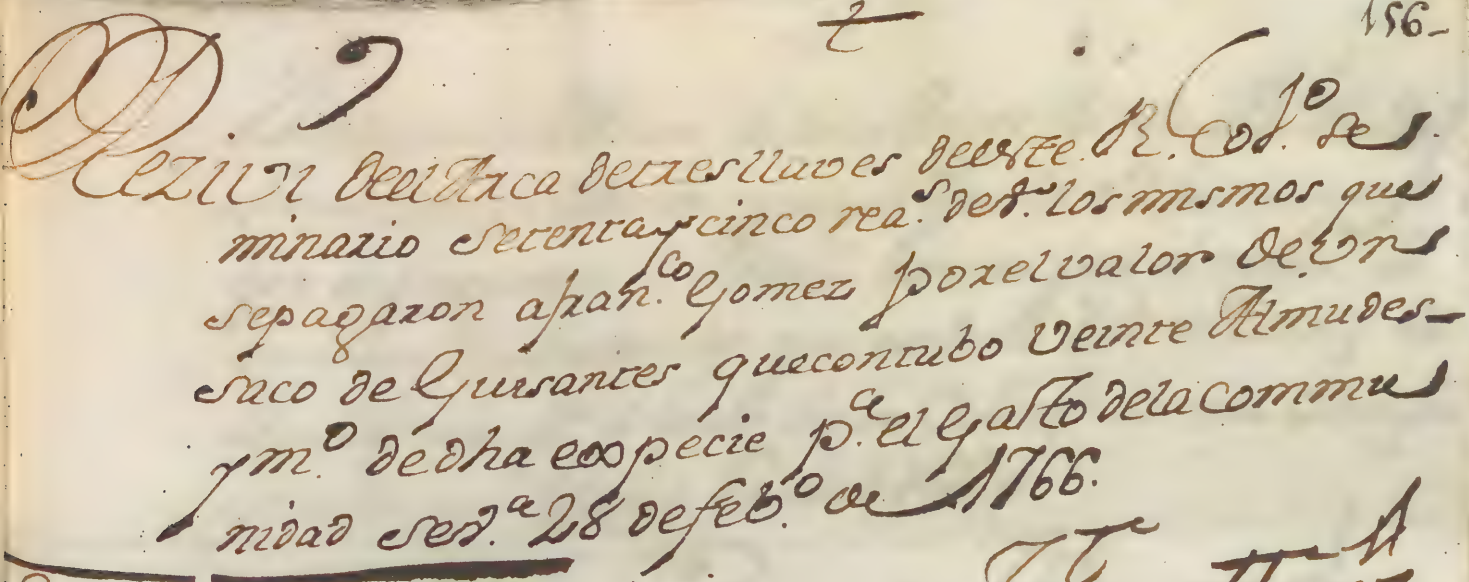 156-
Rezivi de el Arca de tres llaves de este R. Col.º Se
minario setenta y cinco rea.s de v.n los mismos que
se pagaron a fran.co Gomez por el valor de un
saco de Guisantes que contubo veinte Almudes
y m.º de dha expecie p.a el Gasto de la commu
nidad Sev.a 28 de feb.º de 1766.